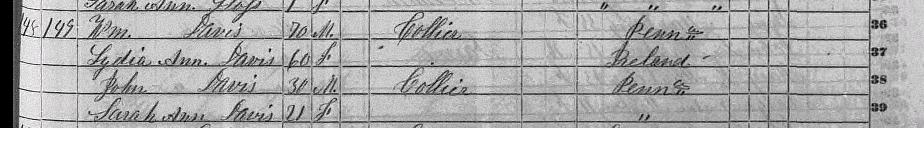 Sarah Ann. 1 F " " "
148 149 Wm. Davis 70 M. Collier Penna 36
Lydia Ann. Davis 60 F Ireland 37
John Davis 30 M. Collier Penna 38
Sarah Ann Davis 21 F " 39